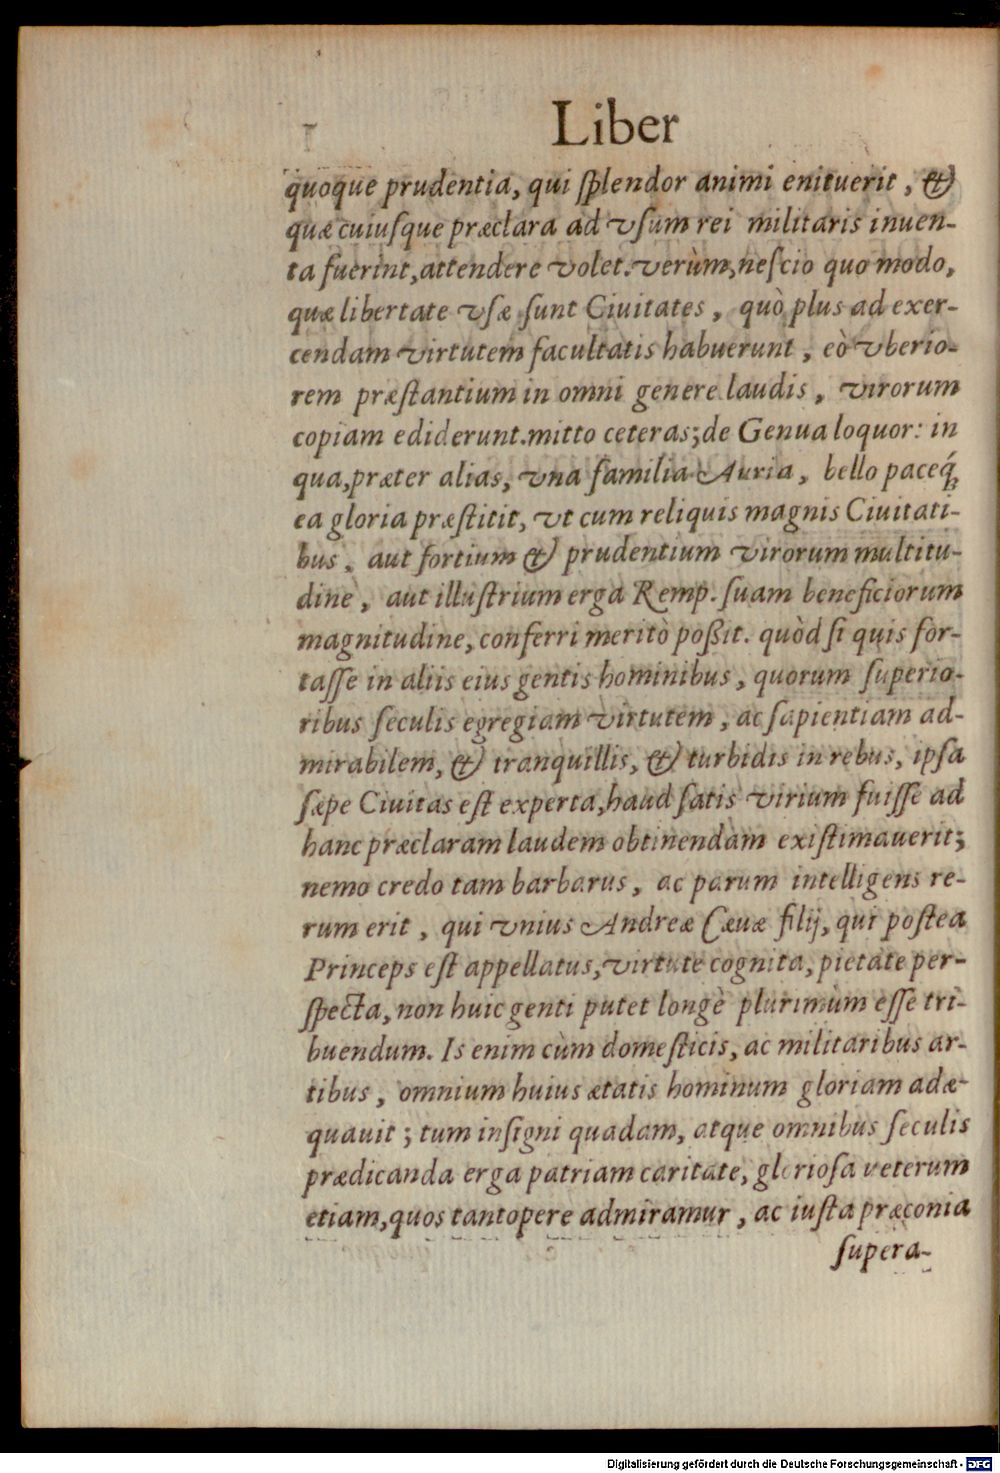 Liber
quoque prudentia, qui ſplendor animi enituerit, &
quæ cuiuſque præclara ad vſum rei militaris inuen-
ta fuerint, attendere volet. verùm, neſcio quo modo,
quæ libertate vſæ ſunt Ciuitates, quò plus ad exer-
cendam virtutem facultatis habuerunt, eò vberio-
rem præſtantium in omni genere laudis, virorum
copiam ediderunt. mitto ceteras; de Genua loquor: in
qua, præter alias, vna familia Auria, bello paceq́;
ea gloria præſtitit, vt cum reliquis magnis Ciuitati-
bus, aut fortium & prudentium virorum multitu-
dine, aut illuſtrium erga Remp. ſuam beneficiorum
magnitudine, conferri meritò poßit. quòd ſi quis for-
taſſe in aliis eius gentis hominibus, quorum ſuperio-
ribus ſeculis egregiam virtutem, ac ſapientiam ad-
mirabilem, & tranquillis, & turbidis in rebus, ipſa
ſæpe Ciuitas eſt experta, haud ſatis virium fuiſſe ad
hanc præclaram laudem obtinendam exiſtimauerit;
nemo credo tam barbarus, ac parum intelligens re-
rum erit, qui vnius Andreæ Cæuæ filij, qui poſtea
Princeps eſt appellatus, virtute cognita, pietate per-
ſpecta, non huic genti putet longè plurimùm eſſe tri-
buendum. Is enim cùm domeſticis, ac militaribus ar-
tibus, omnium huius ætatis hominum gloriam adæ-
quauit; tum inſigni quadam, atque omnibus ſeculis
prædicanda erga patriam caritate, glorioſa veterum
etiam, quos tantopere admiramur, ac iuſta præconia
ſupera-
Digitalisierung gefördert durch die Deutsche Forschungsgemeinschaft - DFG